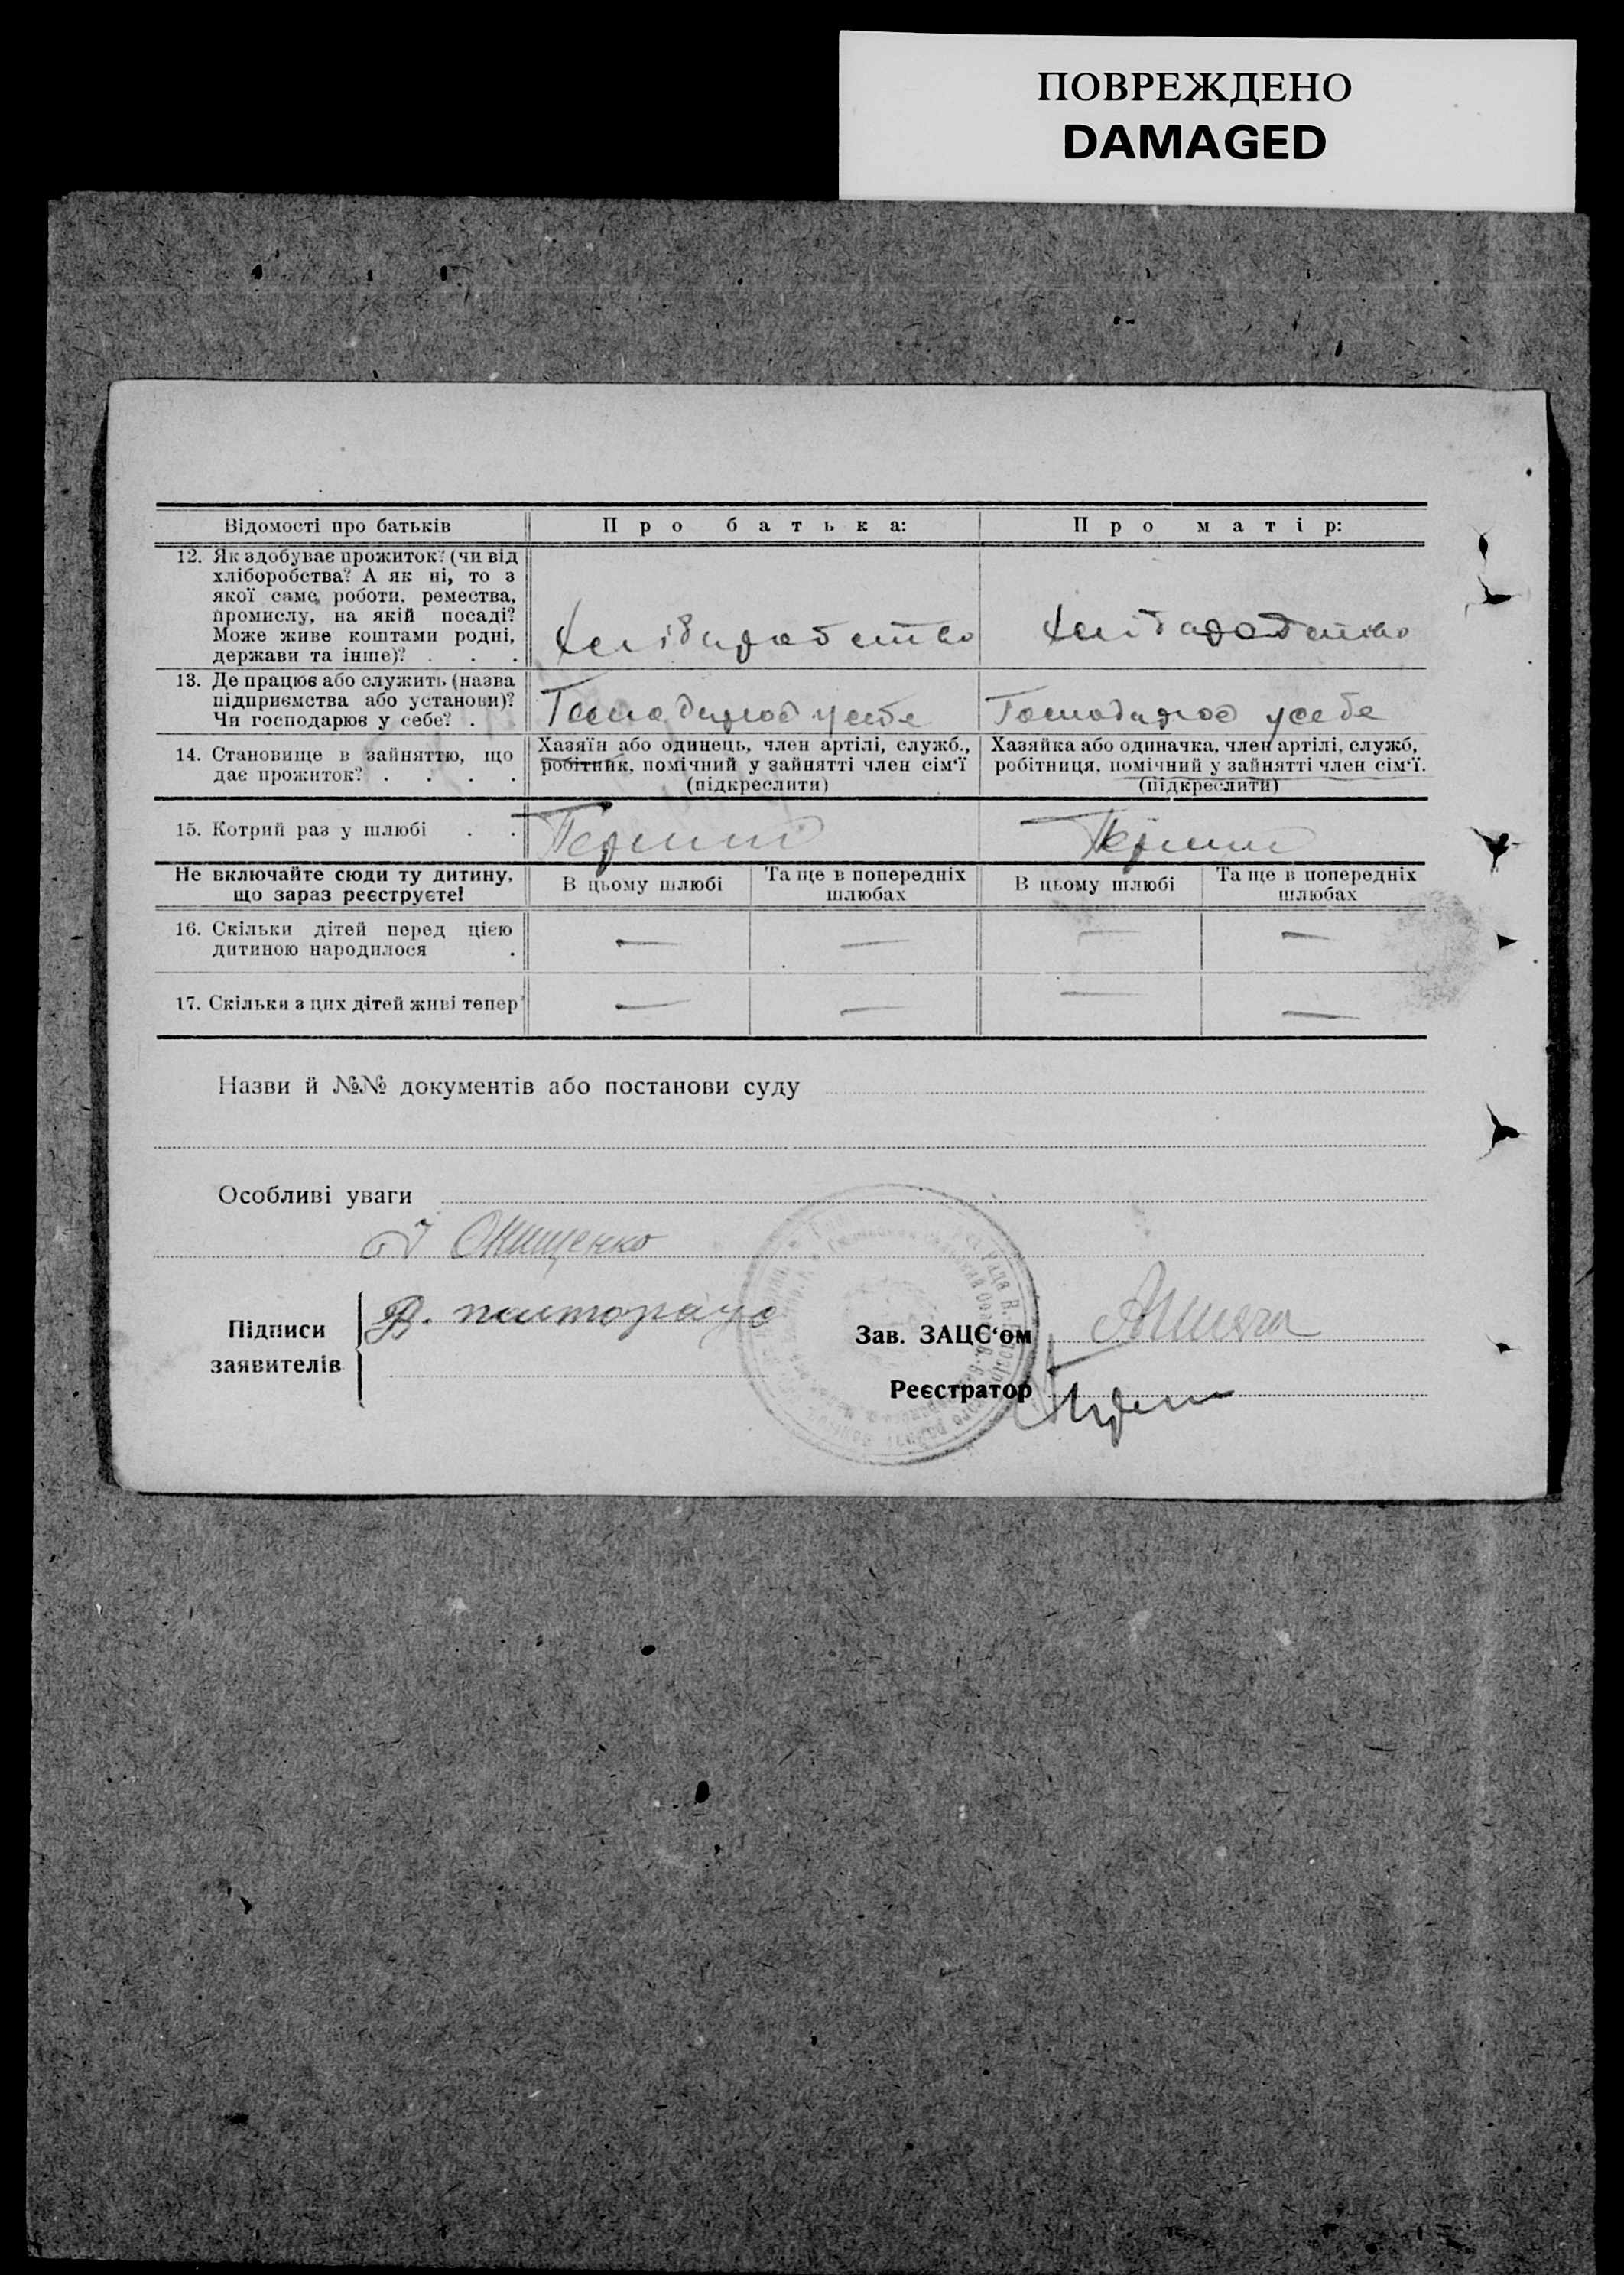 ПОВРЕЖДЕНО
DAMAGED
Відомості про батьків
Про батька:
Про матір:
12. Як здобуває прожиток? (чи від
хліборобства? А як ні, то з
якої саме роботи, ремества,
промислу, на якій посаді?
Може живе коштами родні,
держави та інше)? . . .
13. Де працює або служить (назва
підприємства або установи)?
Чи господарює у себе? .
Господарює усебе
Господарює усебе
14. Становище в зайняттю, що
дає прожиток? . . . .
Хазяїн або одинець, член артілі, служб.,
робітник, помічний у зайнятті член сім'ї
(підкреслити)
Хазяйка або одиначка, член артілі, служб,
робітниця, помічний у зайнятті член сім'ї.
(підкреслити)
15. Котрий раз у шлюбі . .
Перший
Перший
Не включайте сюди ту дитину,
що зараз реєструєте!
В цьому шлюбі
Та ще в попередніх
шлюбах
В цьому шлюбі
Та ще в попередніх
шлюбах
16. Скільки дітей перед цією
дитиною народилося .
— — — —
17. Скільки з цих дітей живі тепер
— — — —
Назви й №№ документів або постанови суду
Особливі уваги
Онищенко
Підписи
заявителів
Зав. ЗАЦС'ом
Реєстратор